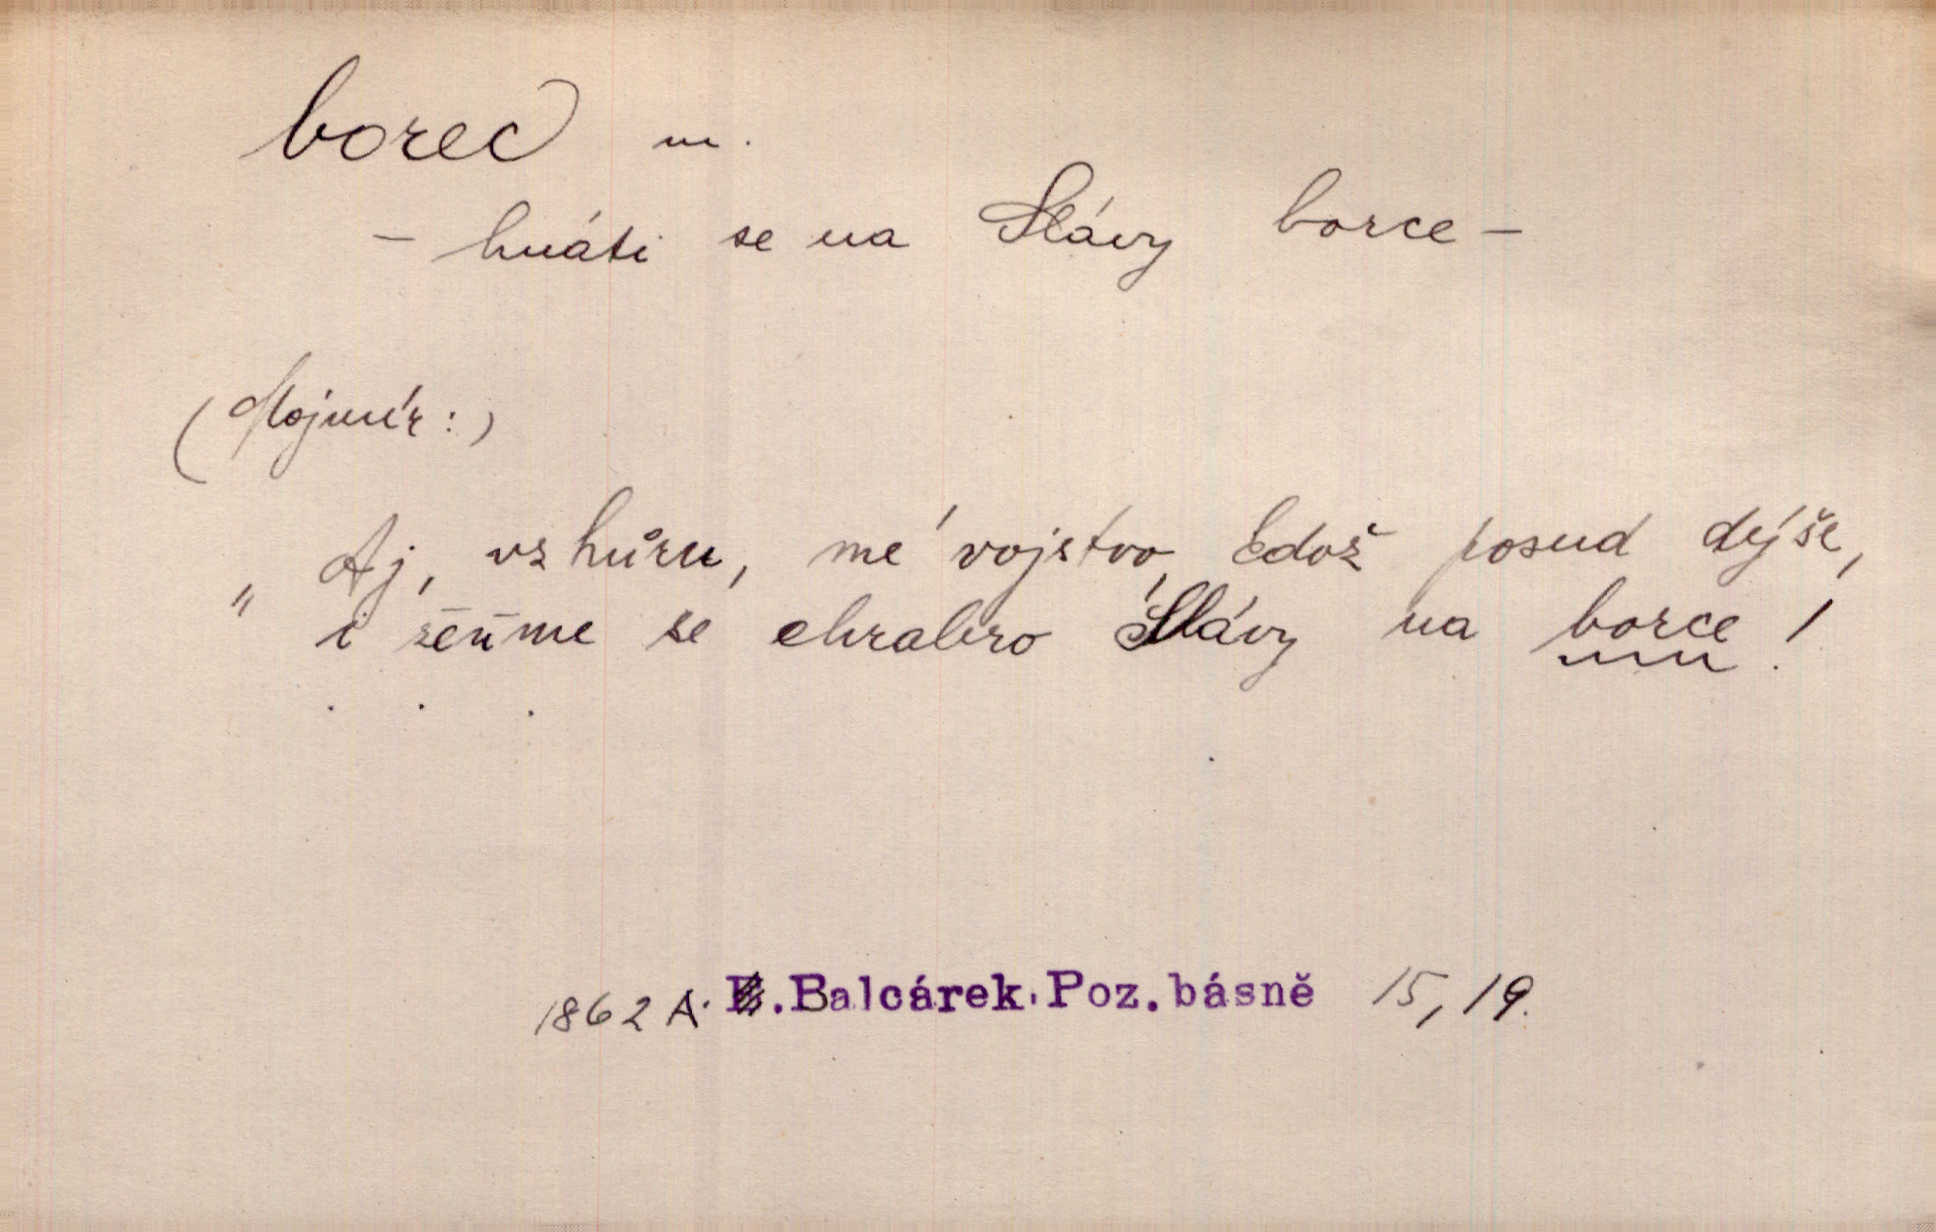 borec m.
– hnáti se na Slávy borce –
(Mojmír:)
„Aj, vzhůru, mé vojstvo, kdož posud dýše,
i žeňme se chrabro Slávy na borce!
. . .
1862 A. .Balcárek. Poz. básně 15, 19.